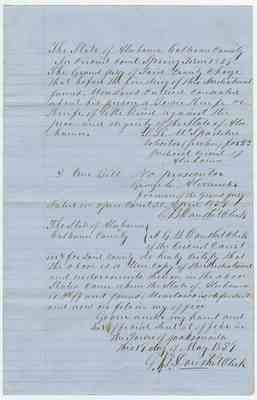 The State of Alabama Calhoun County
In Circuit Court Spring Term 1859
The Grand jury of Said County Charge
that before the finding of this Indictment
James Meadows carried concealed
about his person a Bowie Knife or
Knife of like kind against the
peace and dignity of the State of Ala
bama.
Solicitor
Judicial Circuit of
Alabama
A True Bill No prosecutor
George Alexander
foreman of the grand jury
Filed in open Court April 1859
Clerk
The State of Alabama
Calhoun County I G. B. Douthit Clerk
of the Circuit Court
in & for said County do hereby certify that
the above is a True Copy of the Indictment
and endorsements thereon in the above
Stated Case when the State of Alabama
is plff and James Meadows is defendant
and now on file in my office
Given under my hand and
seal of office at office in
the Town of Jacksonville
this day of May 1859
G. B. Douthit Clerk